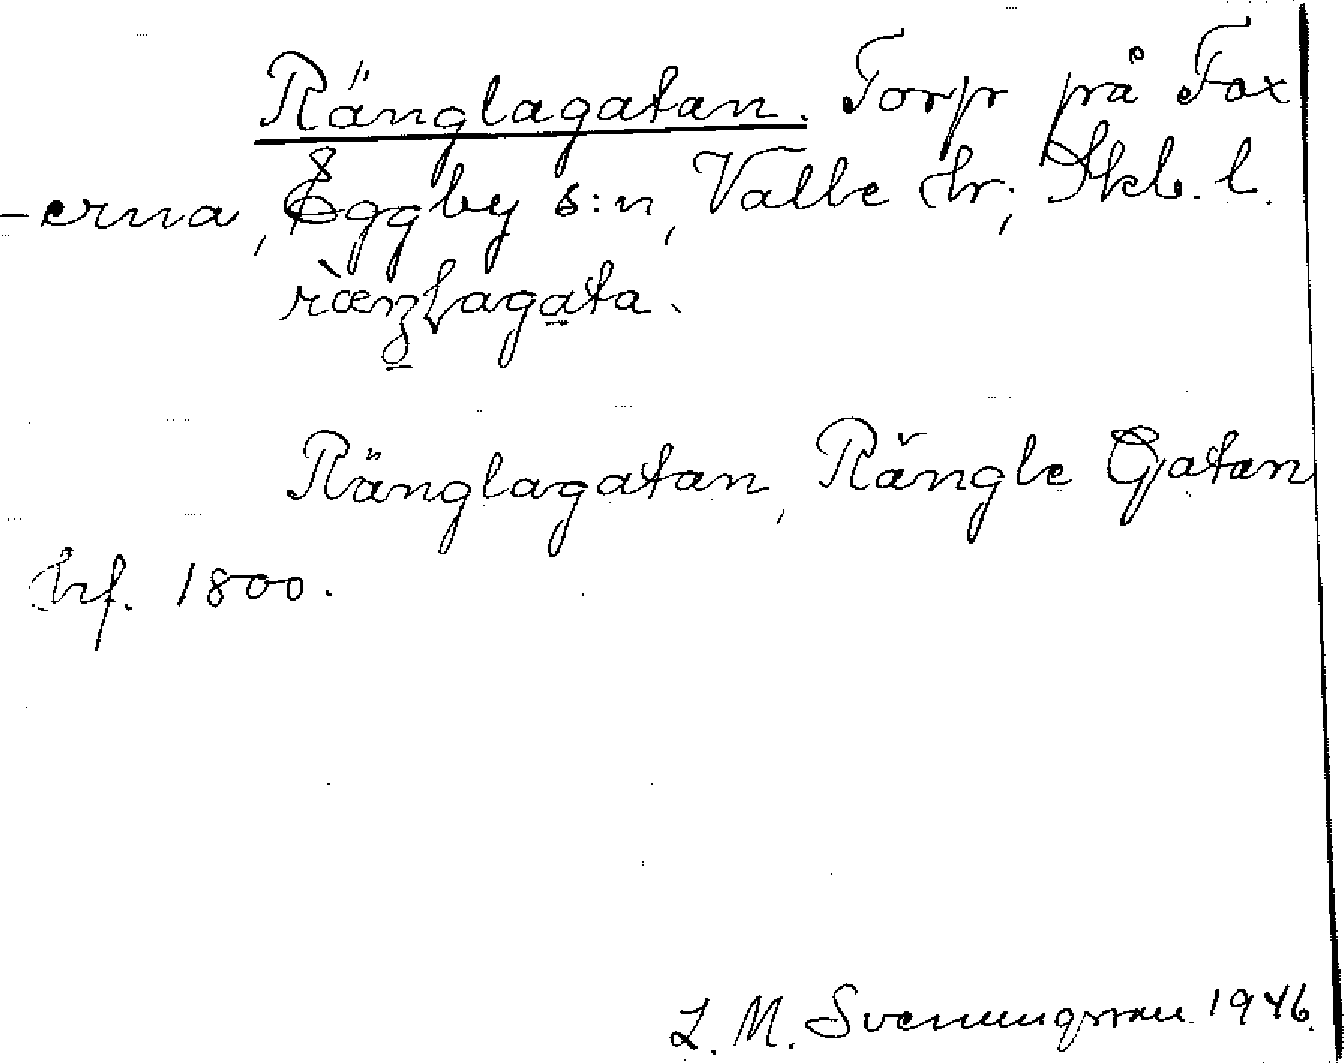 Ränglagatan. Torp på Fax
-erna, Eggby s:n, Valle hr; Skb. l.
ræ̀ŋlagata.
Ränglagatan, Rängle Gatan
hrf. 1800.
L. M. Svenungsson 1946.